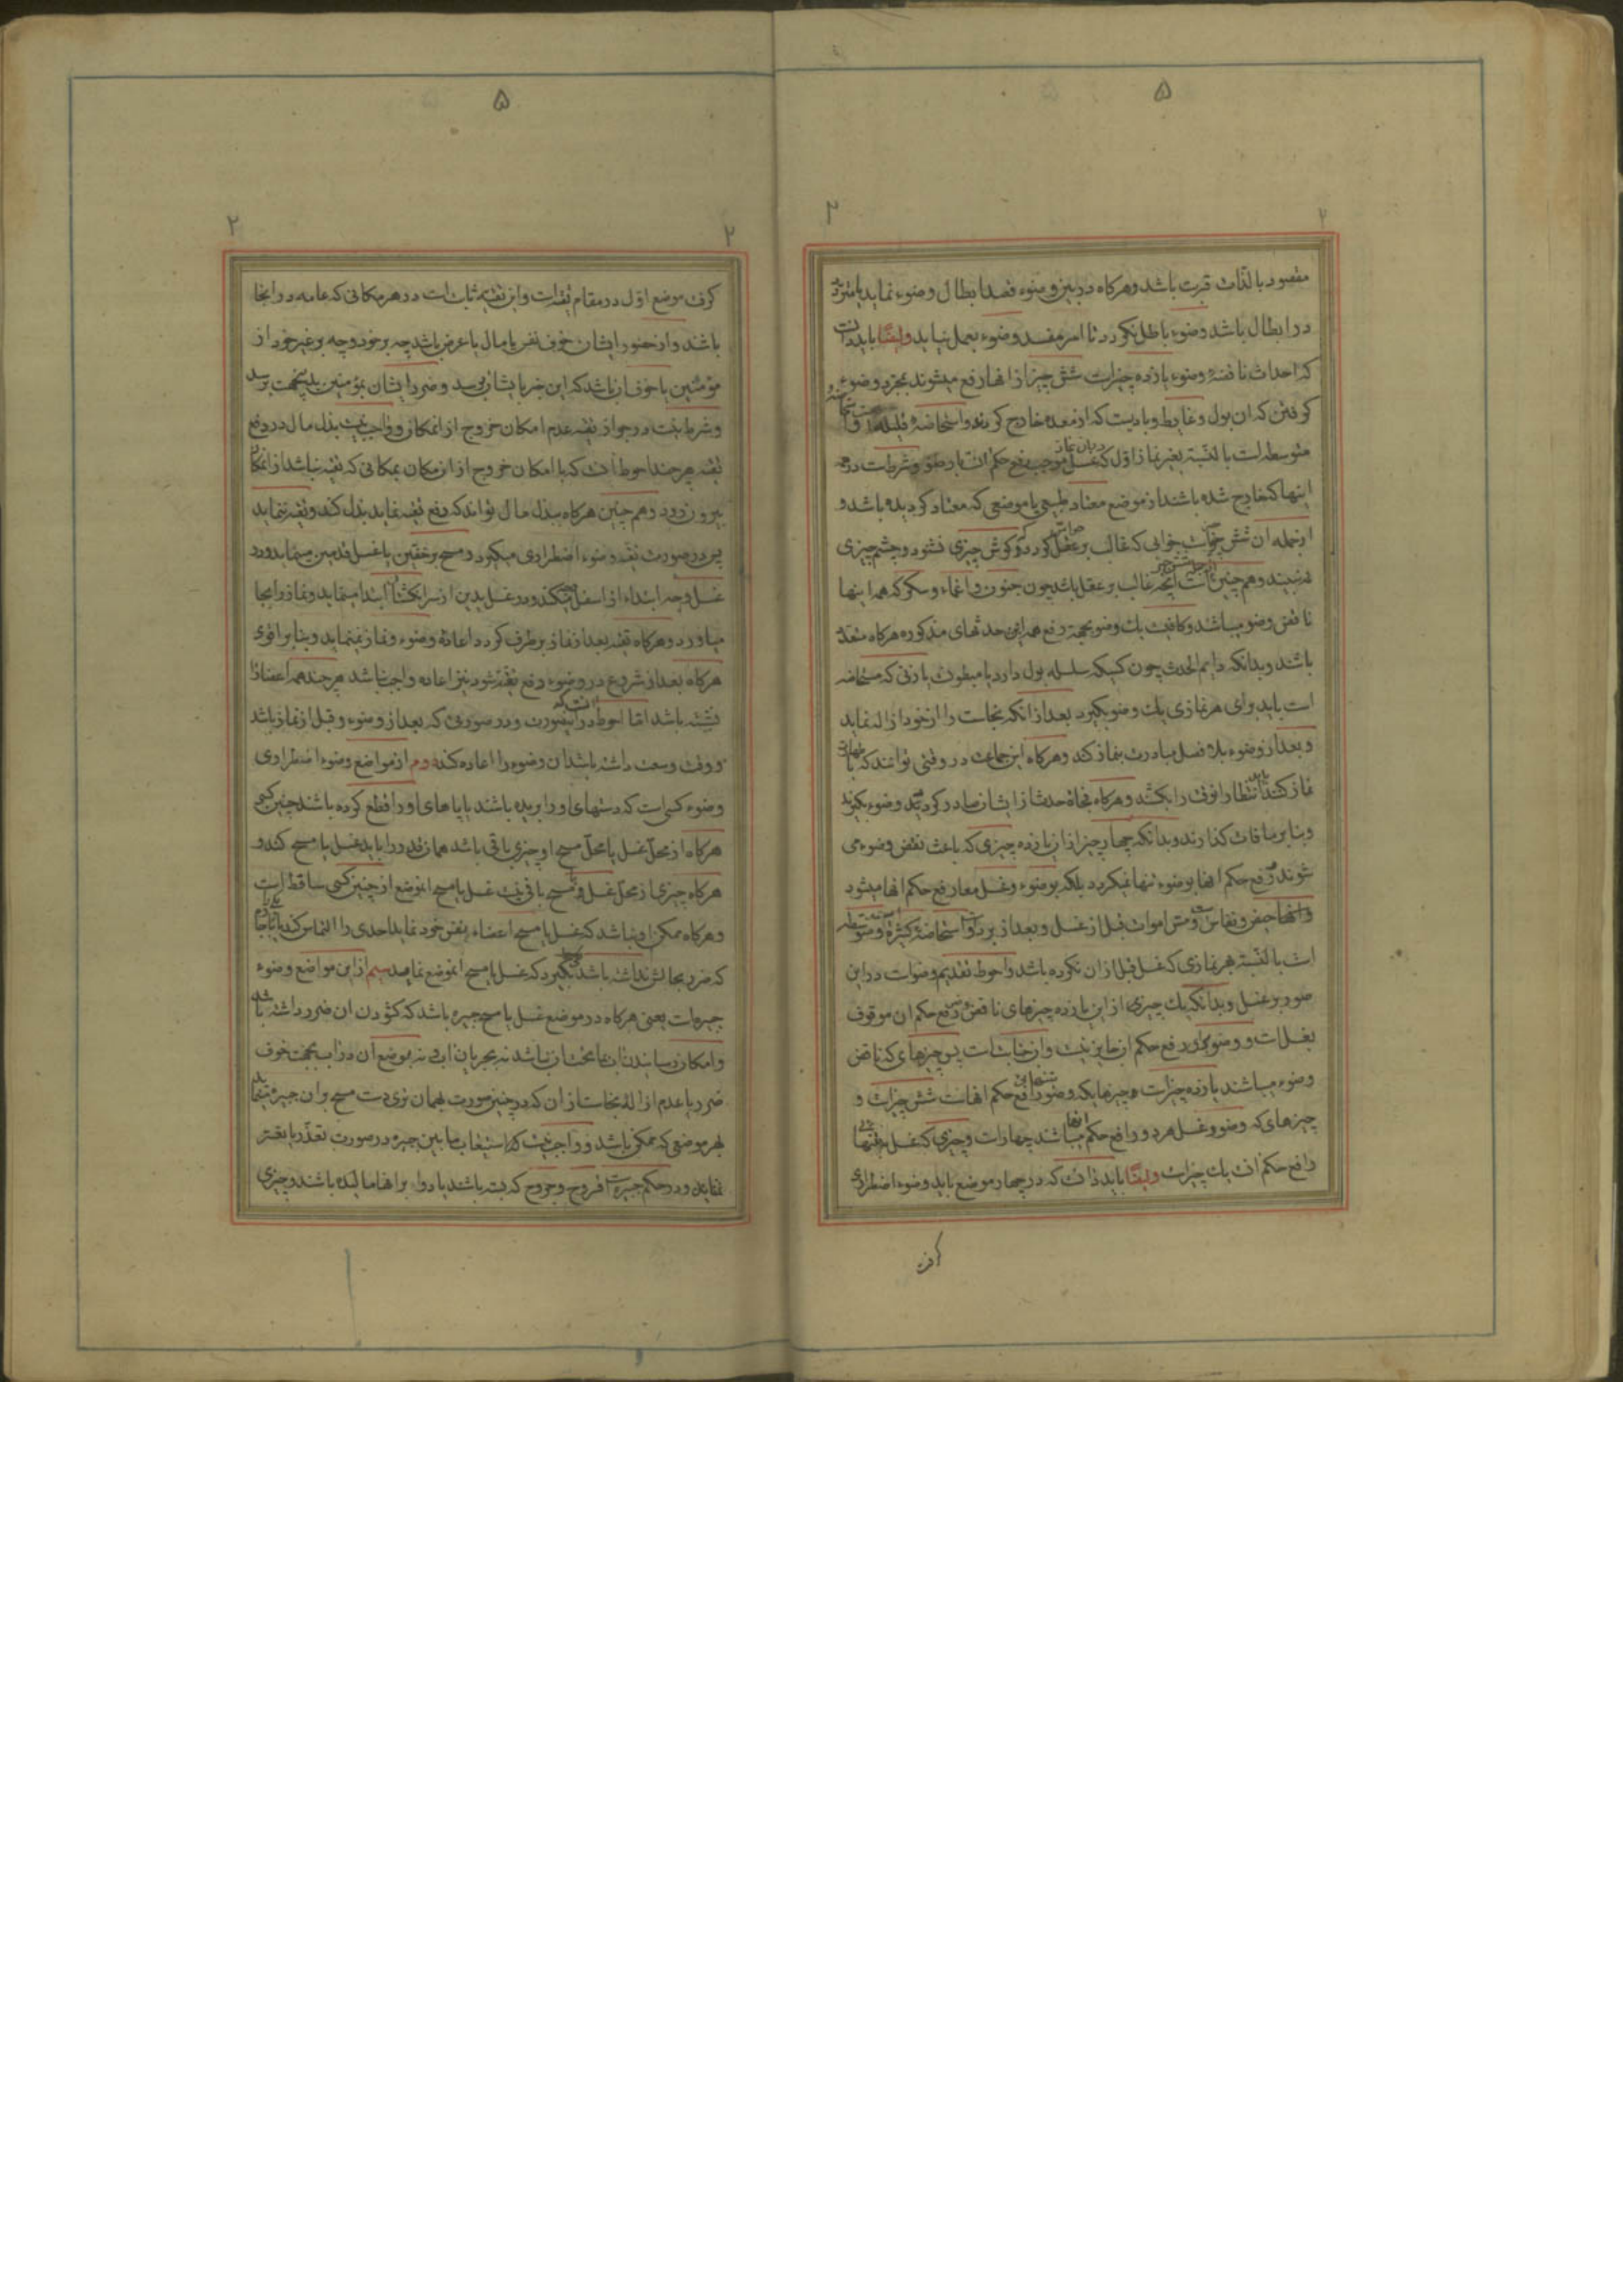 ۵
۲
۲
مقصود بالذات قربت باشد وهرکاه در بین وضوء قصد ابطال وضوء نماید یا متردد
در ابطال باشد وضوء باطل نکردد تا امر مفسد وضوء بعمل نیاید وایضًا باید دانست
که احداث ناقضهٔ وضوء یازده چیزاست شش چیز از انها رفع میشوند بمجرد وضوء
کرفتن که ان بول وغایط وبادیست که از معده خارج کردند واستحاضهٔ قلیله
متوسطه است بالنسبة بغیر نماز اوّل که غسل موجب رفع حکم ان
اینها که خارج شده باشند از موضع معتاد طبیعی یا موضعی که معتاد کردیده باشد و
ازجمله ان شش خوابست خوابی که غالب بر عقل کردد که کوش چیزی نشنود وچشم چیزی
نه بیند وهم چنین است انچه غالب بر عقل باشد چون جنون واغماء وسکر که همه اینها
ناقض وضو میباشند وکافیست یك وضو بجهة رفع همه این حدثهای مذکوره هرکاه متعدّد
باشند وبدانکه دایم الحدث چون کسیکه سلسله بول دارد یا مبطون یا زنی که مستحاضه
است باید برای هر نمازی یك وضو بکیرد بعد از انکه نجاست را از خود ازاله نماید
وبعد از وضوء بلا فصل مبادرت بنماز کند وهرکاه این جماعت در وقتی توانند که باطهارت
نماز کنند باید انتظار انوقت را بکشند وهرکاه فجاة حدث از ایشان صادر کردید وضوء بکیرند
وبنا بر مافات کذارند وبدانکه چهار چیز از ان یازده چیزی که باعث نقض وضوء می
شوند رفع حکم انها بوضوء تنها نمیکردد بلکه بوضوء وغسل معا رفع حکم انها میشود
وانها حیض ونفاس ومس اموات قبل از غسل وبعد از برد واستحاضهٔ کثیره ومتوسطه
است بالنسبة هر نمازی که غسل قبل از ان نکرده باشد واحوط تقدیم وضواست در این
صور بر غسل وبدانکه یك چیزی از این یازده چیزهای ناقض وضو رفع حکم ان موقوف
بغسل است ووضو برای رفع حکم ان جایز نیست وان جنابت است پس چیزهای که ناقض
وضوء میباشند یازده چیزاست وچیزهایکه وضو بتنهایی رافع حکم انهاست شش چیزاست و
چیزهای که وضو وغسل هر دو رافع حکم انها میباشند چهار است وچیزی که غسل بتنهایی
رافع حکم انست یك چیزاست وایضًا باید دانست که در چهار موضع باید وضوء اضطراری
کرفت
۵
۲
۲
کرفت موضع اوّل در مقام تقیه است واین تقیه ثابت است در هر مکانی که عامه در انجا
باشند واز حضور ایشان خوف نفس یا مال یا عرض باشد چه بر خود وچه بر غیر خود از
مؤمنین یا خوف ان باشد که این خبر بایشان برسد وضرر ایشان بمؤمنین بدینجهت برسد
وشرط نیست در جواز تقیه عدم امکان خروج از انمکان وواجب نیست بذل مال در دفع
تقیه هرچند احوط انست که با امکان خروج از ان مکان بمکانی که تقیه نباشد از انمکان
بیرون رود وهم چنین هرکاه ببذل مال تواند که دفع تقیه نماید بذل کند وتقیه ننماید
پس در صورت تقیه وضوء اضطراری میکیرد ومسح بر خفین یا غسل قدمین مینماید ودر
غسل وجه ابتداء از اسفل میکند ودر غسل یدین از سر انکشتان ابتدا مینماید ونماز را بجا
میاورد وهرکاه تقیه بعد از نماز برطرف کردد اعادهٔ وضوء ونماز نمینماید وبنابر اقوی
هرکاه بعد از شروع در وضوء رفع تقیه شود نیز اعاده واجب نباشد هرچند همه اعضا از
نشسته باشد امّا احوط در اینصورت ودر صورتی که بعد از وضوء وقبل از نماز باشد
ووقت وسعت داشته باشد ان وضوء را اعاده کند دوم از مواضع وضوء اضطراری
وضوء کسی است که دستهای او را بریده باشند یا پاهای او را قطع کرده باشند چنین کسی
هرکاه از محلّ غسل یا محلّ مسح او چیزی باقی باشد همان قدر را باید غسل یا مسح کند و
هرکاه چیزی از محلّ غسل ومسح باقی نیست غسل یا مسح انموضع از چنین کسی ساقط است
وهرکاه ممکن او نباشد که غسل یا مسح اعضاء بنفس خود نماید احدی را التماس کند
که ضرر بحالش نداشته باشد بکیرد که غسل یا مسح انموضع نماید سیم از این مواضع وضوء
جبیره است یعنی هرکاه در موضع غسل یا مسح جبیره باشد که کشودن ان ضرر داشته باشد
وامکان رسانیدن اب بما تحت ان نباشد نه بجریان اب ونه بموضع ان در اب بجهت خوف
ضرر یا عدم ازالهٔ نجاست از ان که در چنین صورت بهمان تری دست مسح بر ان جبیره مینماید
بهر موضعی که ممکن باشد وواجب نیست که استیعاب مابین جبیره در صورت تعذّر یا تعسّر
نماید ودر حکم جبیره است قروح وجروح که بسته باشند یا دوا بر انها مالیده باشند وچیزی